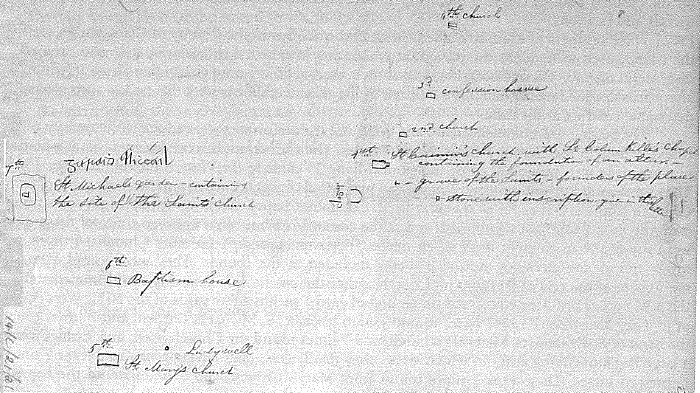 4th church
3d confession house
2nd church
1st St church with St Colum Kille's Chapel
containing the foundation of an altar
grave of the Saints - founders of the place
& stone with inscription give in the
7th
St Michaels garden - containing
the site of the Saints' church
6th
Baptism house
5th
Ladywell
St Marys church
14/C/21/2